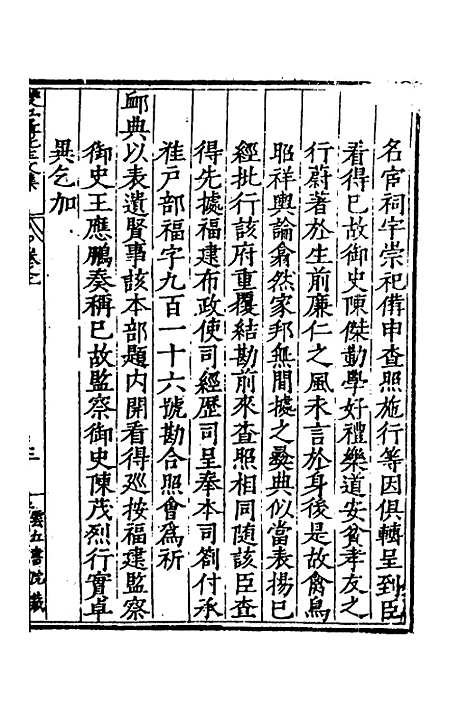 名宦祠宇崇祀備申查照施行等因俱轉呈到臣
看得已故御史陳傑勤學好禮樂道安貧孝友之
行蔚著於生前廉仁之風未言於身後是故禽鳥
昭祥輿論翕然家邦無間據之彜典似當表揚已
經批行該府重覆結勘前來查照相同隨該臣查
得先據福建布政使司經歷司呈奉本司劄付承
准戶部福字九百一十六號勘合照會為祈
卹典以表遺賢事該本部題内開看得廵按福建監察
御史王應鵬奏稱已故監察御史陳茂烈行實卓
異乞加
卷之
三
雲丘書院藏